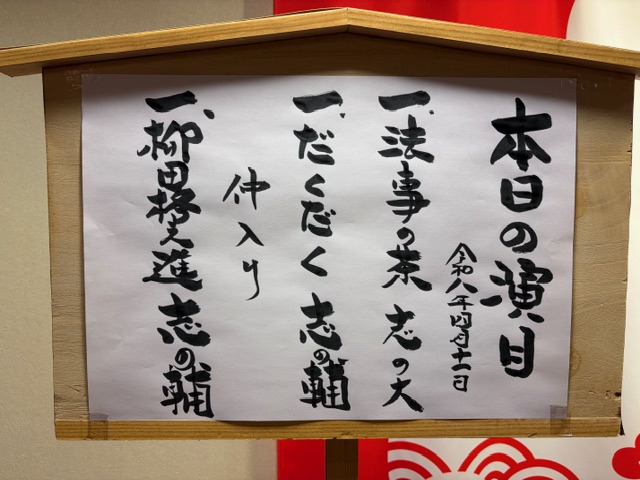 本日の演目
令和八年四月十一日
一、法事の茶 志の大
一、だくだく 志の輔
仲入り
一、柳田格之進 志の輔